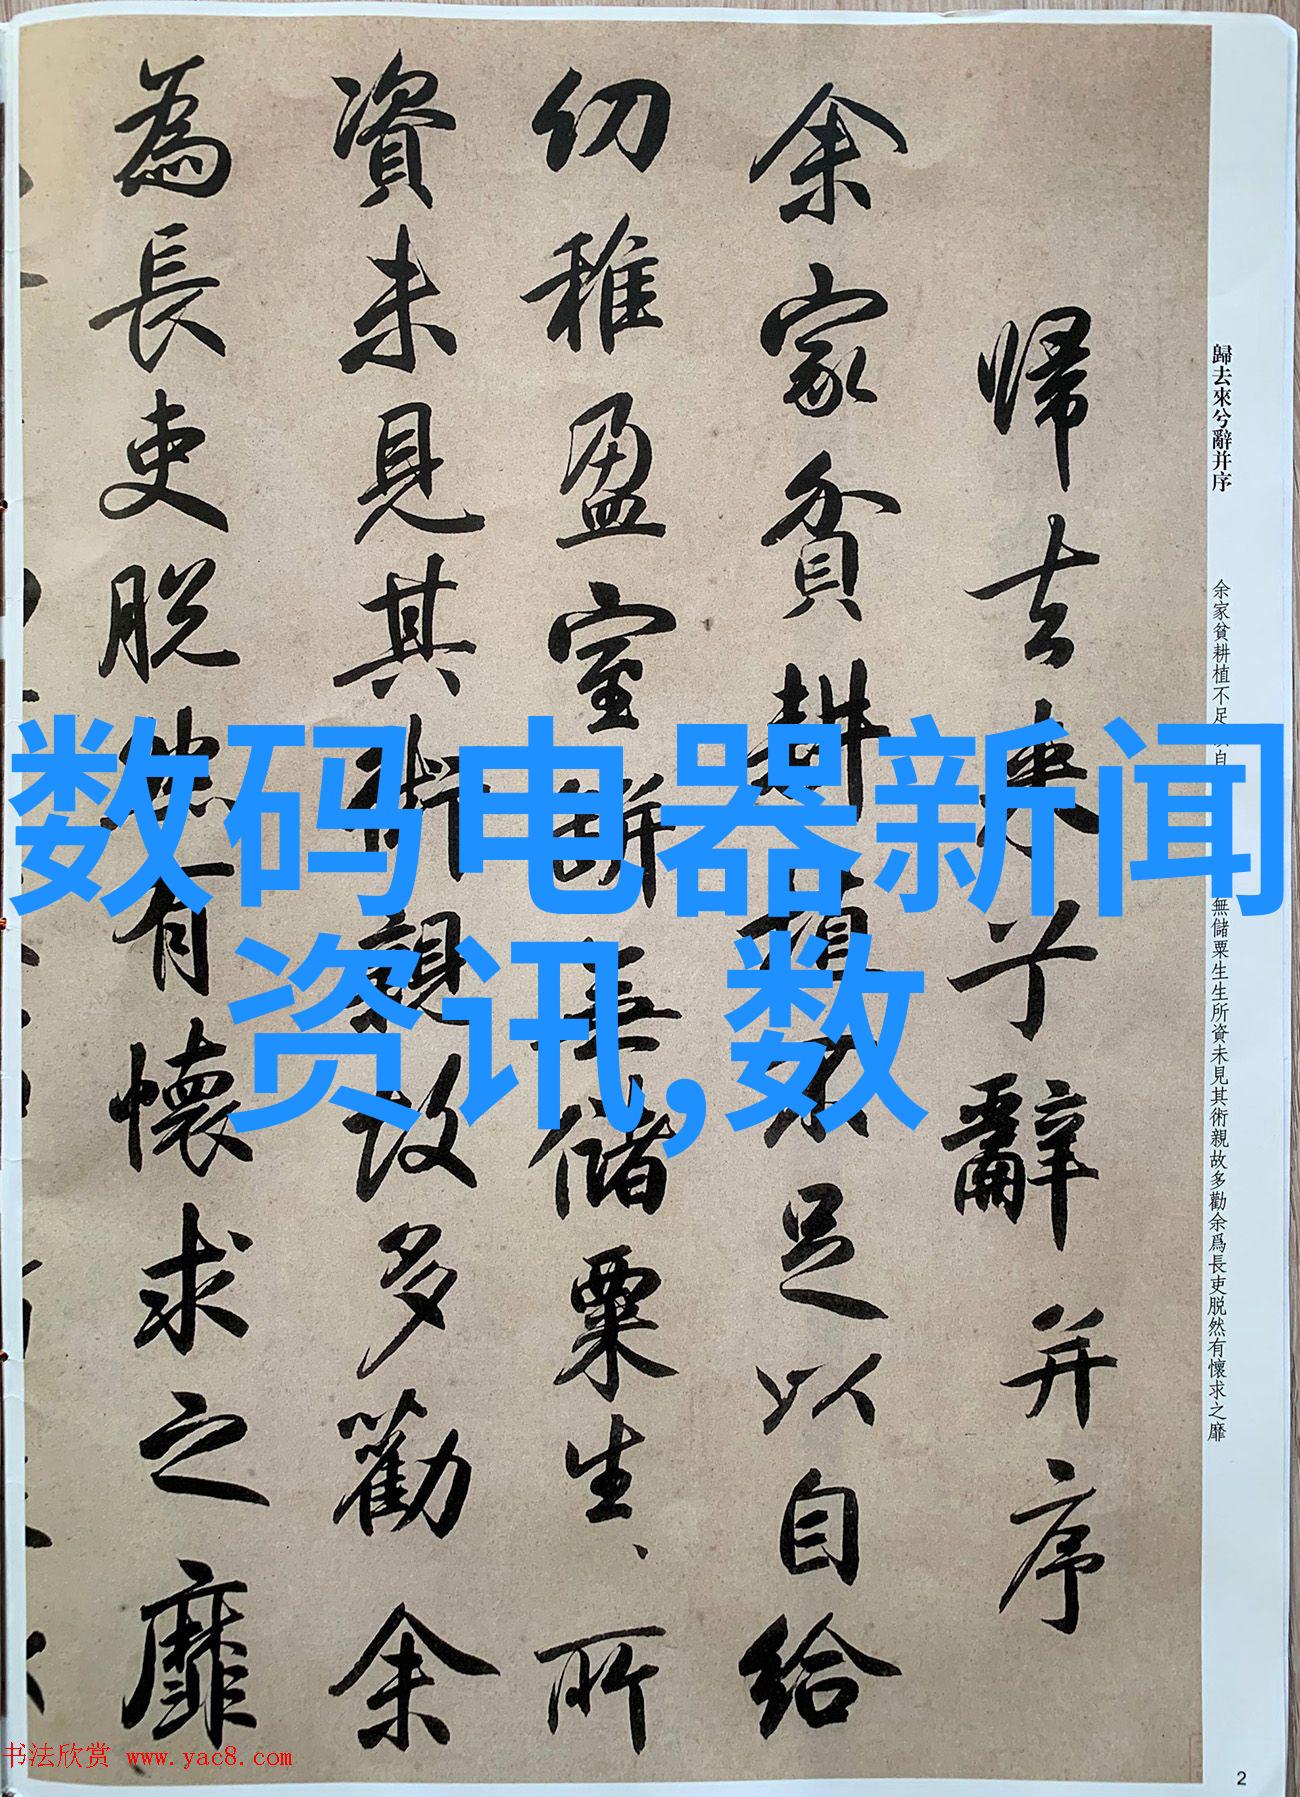 歸去來兮辭并序
余家貧耕植不足以自
無儲粟生生所資未見其術親故多勸余爲長吏脱然有懷求之靡
帰去来兮辭并序
余家貧耕植不足以自給
幼稚盈室缾無儲粟生、所
資未見其術親故多勸余
為長吏脱然有懷求之靡
数码电器新闻
资讯,数
书法欣赏 www.yac8.com
2